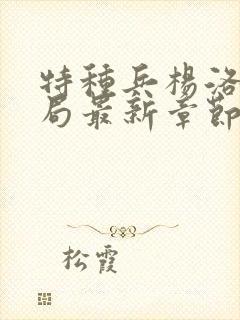 特種兵楊洛
局最新章節
松霞